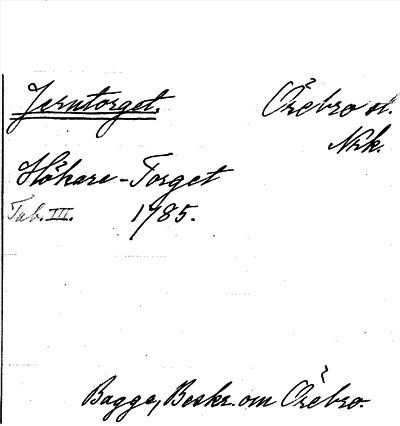 Jerntorget.
Örebro st.
Nrk.
Hökare-Torget
Tab. III. 1785.
Bagge, Beskr. om Örebro.